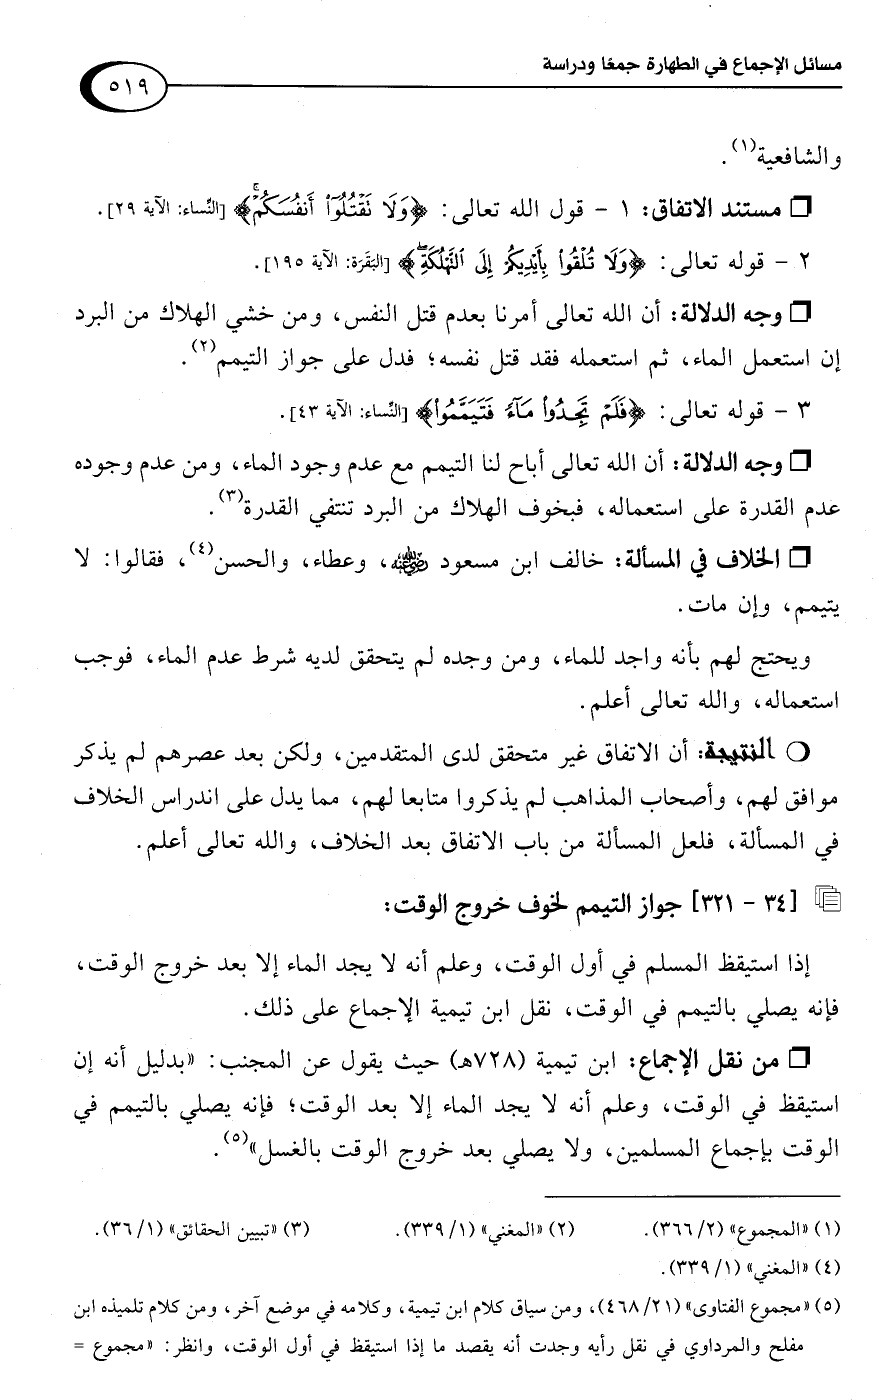 مسائل الإجماع في الطهارة جمعًا ودراسة
٥١٩
والشافعية(١).
❒ مستند الاتفاق: ١ - قول الله تعالى: ﴿وَلَا نَقۡتُلُوٓاْ أَنفُسَكُمۡۚ﴾ [النِّساء: الآية ٢٩].
٢ - قوله تعالى: ﴿وَلَا تُلۡقُواْ بِأَيۡدِيكُمۡ إِلَى ٱلتَّهۡلُكَةِۛ﴾ [البَقَرَة: الآية ١٩٥].
❒ وجه الدلالة: أن الله تعالى أمرنا بعدم قتل النفس، ومن خشي الهلاك من البرد
إن استعمل الماء، ثم استعمله فقد قتل نفسه؛ فدل على جواز التيمم(٢).
٣ - قوله تعالى: ﴿فَلَمۡ تَجِدُواْ مَآءٗ فَتَيَمَّمُواْ﴾ [النِّساء: الآية ٤٣].
❒ وجه الدلالة: أن الله تعالى أباح لنا التيمم مع عدم وجود الماء، ومن عدم وجوده
عدم القدرة على استعماله، فبخوف الهلاك من البرد تنتفي القدرة(٣).
❒ الخلاف في المسألة: خالف ابن مسعود رضي الله عنه، وعطاء، والحسن(٤)، فقالوا: لا
يتيمم، وإن مات.
ويحتج لهم بأنه واجد للماء، ومن وجده لم يتحقق لديه شرط عدم الماء، فوجب
استعماله، والله تعالى أعلم.
❍ النتيجة: أن الاتفاق غير متحقق لدى المتقدمين، ولكن بعد عصرهم لم يذكر
موافق لهم، وأصحاب المذاهب لم يذكروا متابعا لهم، مما يدل على اندراس الخلاف
في المسألة، فلعل المسألة من باب الاتفاق بعد الخلاف، والله تعالى أعلم.
[٣٤ - ٣٢١] جواز التيمم لخوف خروج الوقت:
إذا استيقظ المسلم في أول الوقت، وعلم أنه لا يجد الماء إلا بعد خروج الوقت،
فإنه يصلي بالتيمم في الوقت، نقل ابن تيمية الإجماع على ذلك.
❒ من نقل الإجماع: ابن تيمية (٧٢٨هـ) حيث يقول عن المجنب: «بدليل أنه إن
استيقظ في الوقت، وعلم أنه لا يجد الماء إلا بعد الوقت؛ فإنه يصلي بالتيمم في
الوقت بإجماع المسلمين، ولا يصلي بعد خروج الوقت بالغسل»(٥).
(١) «المجموع» (٢/ ٣٦٦). (٢) «المغني» (١/ ٣٣٩). (٣) «تبيين الحقائق» (١/ ٣٦).
(٤) «المغني» (١/ ٣٣٩).
(٥) «مجموع الفتاوى» (٢١/ ٤٦٨)، ومن سياق كلام ابن تيمية، وكلامه في موضع آخر، ومن كلام تلميذه ابن
مفلح والمرداوي في نقل رأيه وجدت أنه يقصد ما إذا استيقظ في أول الوقت، وانظر: «مجموع =